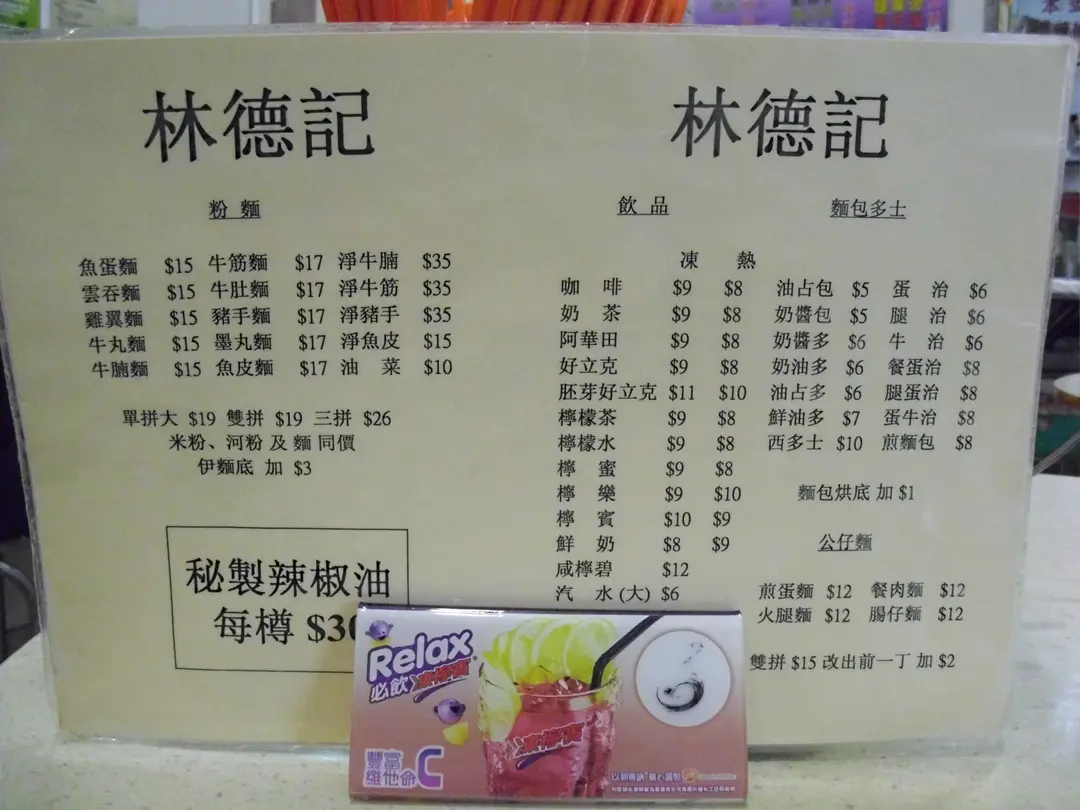 林德記
粉 麵
魚蛋麵 $15 牛筋麵 $17 淨牛腩 $35
雲吞麵 $15 牛肚麵 $17 淨牛筋 $35
雞翼麵 $15 豬手麵 $17 淨豬手 $35
牛丸麵 $15 墨丸麵 $17 淨魚皮 $15
牛腩麵 $15 魚皮麵 $17 油 菜 $10
單拼大 $19 雙拼 $19 三拼 $26
米粉、河粉 及 麵 同價
伊麵底 加 $3
秘製辣椒油
每樽 $30
林德記
飲 品
凍 熱
咖 啡 $9 $8
奶 茶 $9 $8
阿華田 $9 $8
好立克 $9 $8
胚芽好立克 $11 $10
檸檬茶 $9 $8
檸檬水 $9 $8
檸 蜜 $9 $8
檸 樂 $9 $10
檸 賓 $10 $9
鮮 奶 $8 $9
咸檸碧 $12
汽 水 (大) $6
麵包多士
油占包 $5 蛋 治 $6
奶醬包 $5 腿 治 $6
奶醬多 $6 牛 治 $6
奶油多 $6 餐蛋治 $8
油占多 $6 腿蛋治 $8
鮮油多 $7 蛋牛治 $8
西多士 $10 煎麵包 $8
麵包烘底 加 $1
公仔麵
煎蛋麵 $12 餐肉麵 $12
火腿麵 $12 腸仔麵 $12
雙拼 $15 改出前一丁 加 $2
Relax
必飲凍檸賓
凍檸賓
豐富
維他命C